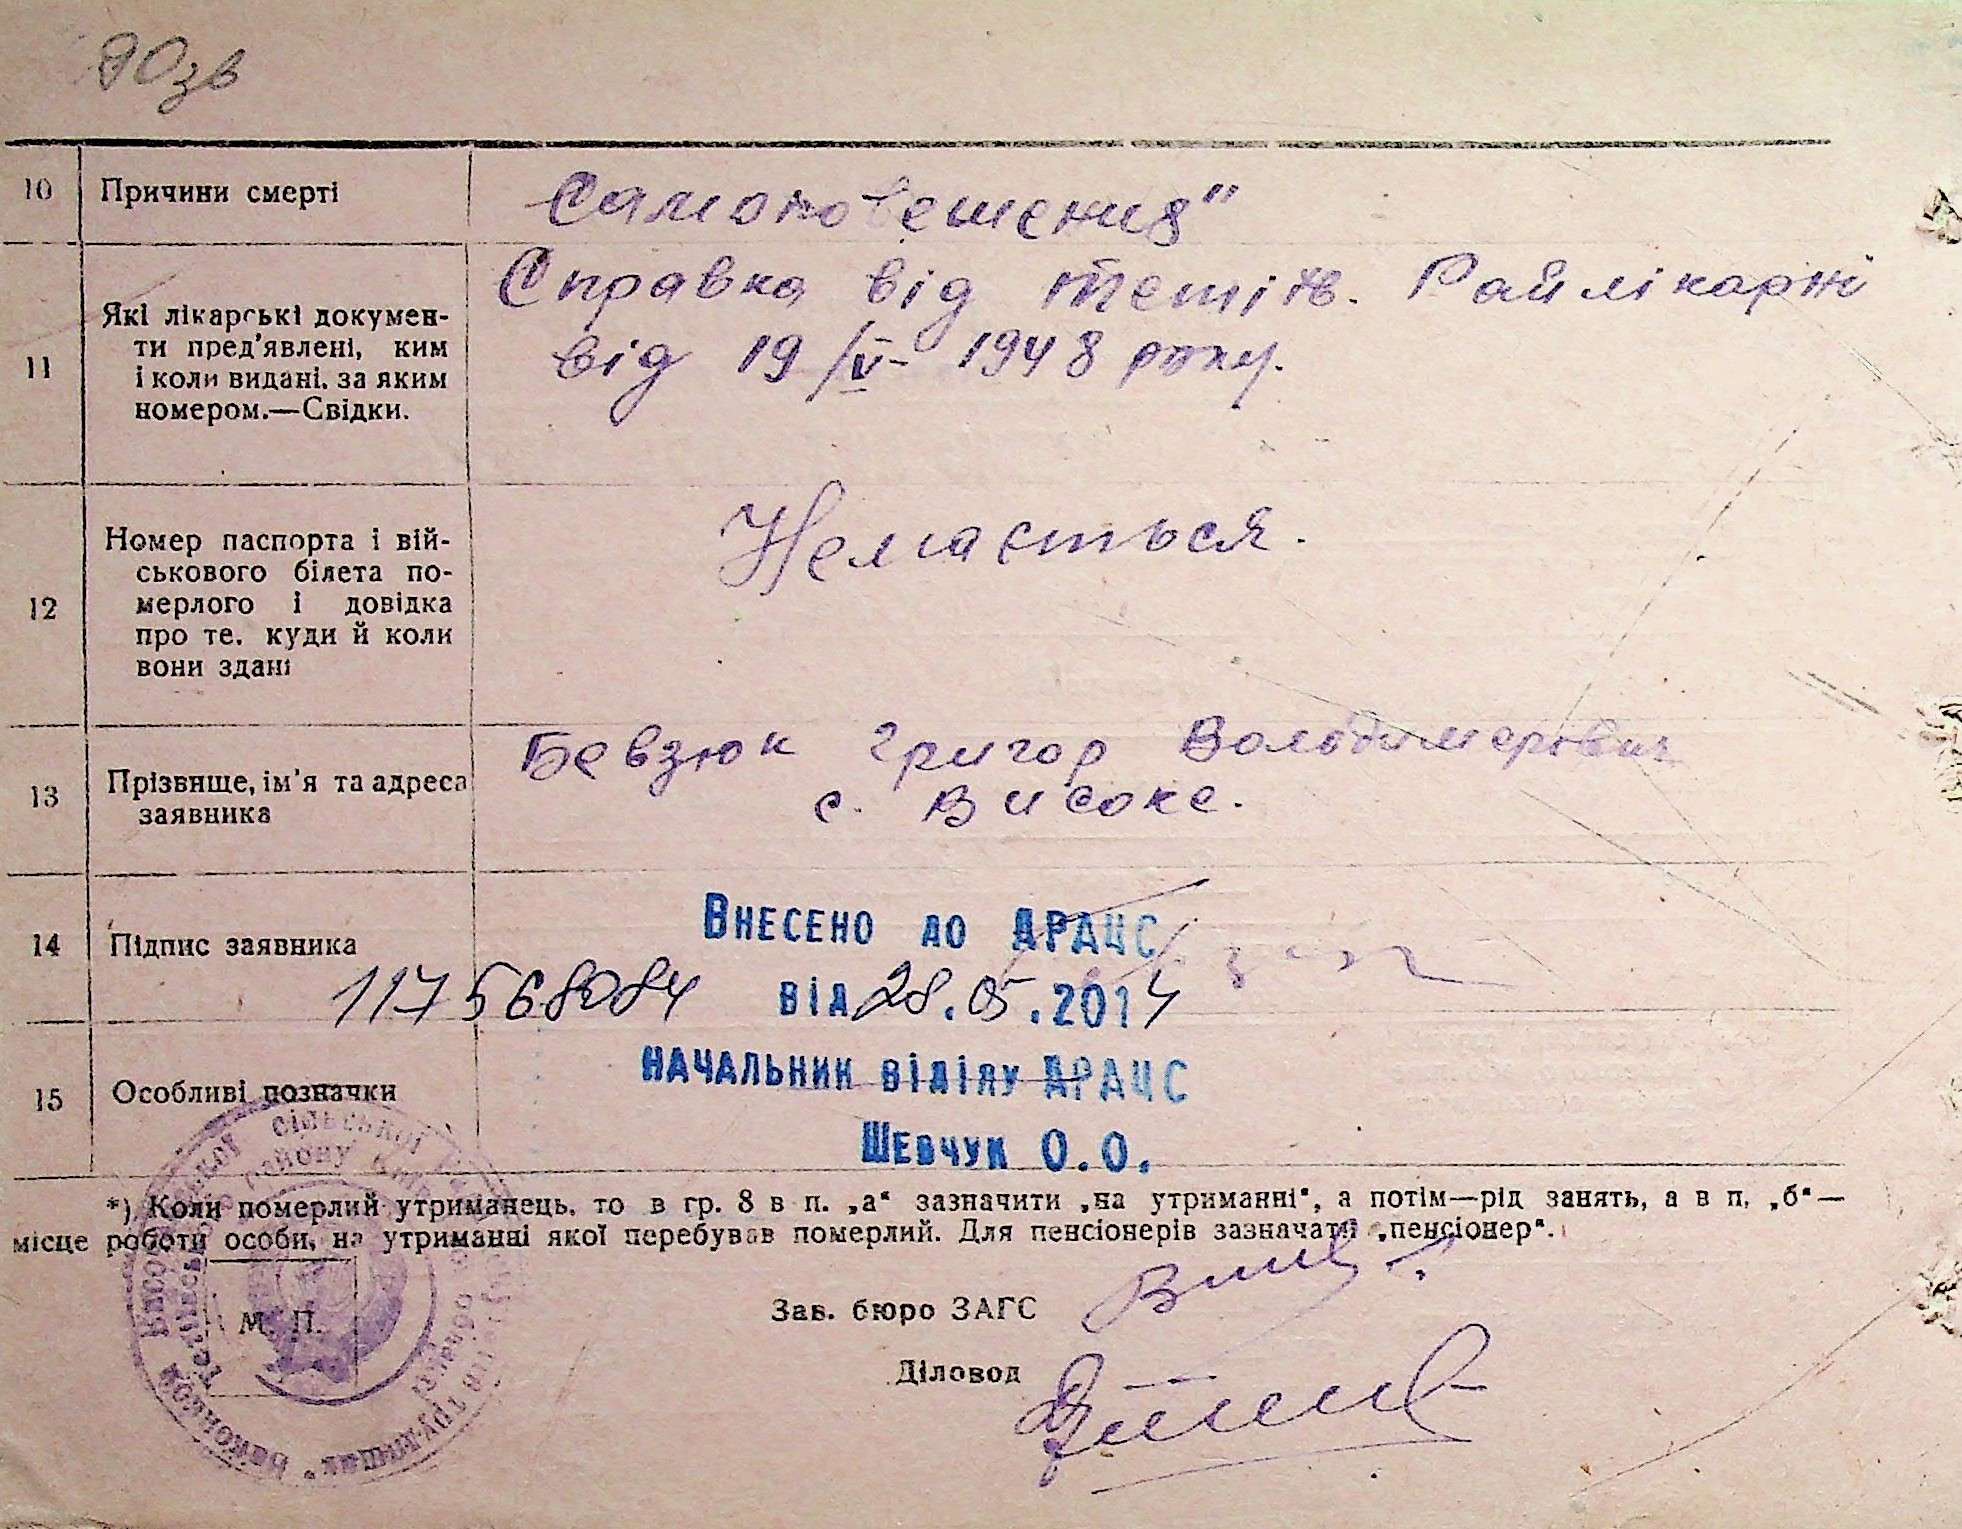 90зв
10 Причини смерті Самоповешения"
11 Які лікарські докумен-
ти пред'явлені, ким
і коли видані, за яким
номером.—Свідки.
Справка від Тетіїв. Райлікарні
від 19/V- 1948 року.
12 Номер паспорта і вій-
ськового білета по-
мерлого і довідка
про те, куди й коли
вони здані
Немається.
13 Прізвище, ім'я та адреса
заявника
Бевзюк Григор Володимерович
с. Високе.
14 Підпис заявника
Внесено до ДРАЦС
117568084 від 28.05.2014
15 Особливі позначки
Начальник відділу ДРАЦС
Шевчук О.О.
*) Коли померлий утриманець, то в гр. 8 в п. „а“ зазначити „на утриманні“, а потім—рід занять, а в п. „б“—
місце роботи особи, на утриманні якої перебував померлий. Для пенсіонерів зазначати „пенсіонер“.
М. П.
Зав. бюро ЗАГС
Діловод